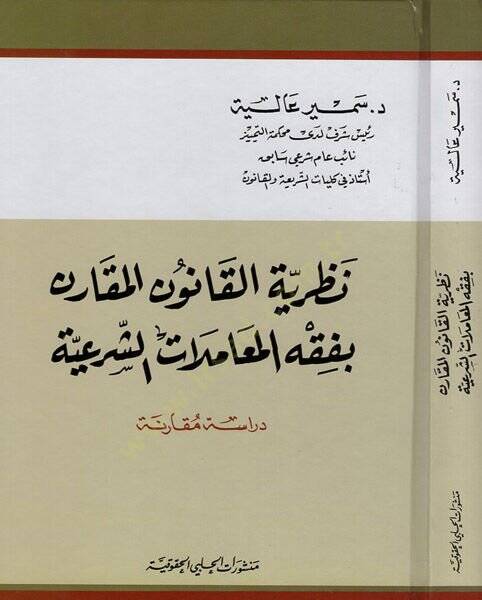 د. سمير عالية
رئيس شرف لدى محكمة التمييز
نائب عام شرعي سابق
أستاذ في كليات الشريعة والقانون
نظرية القانون المقارن
بفقه المعاملات الشرعية
دراسة مقارنة
منشورات الحلبي الحقوقية
د. سمير عالية
نظرية القانون المقارن
بفقه المعاملات الشرعية
منشورات الحلبي الحقوقية